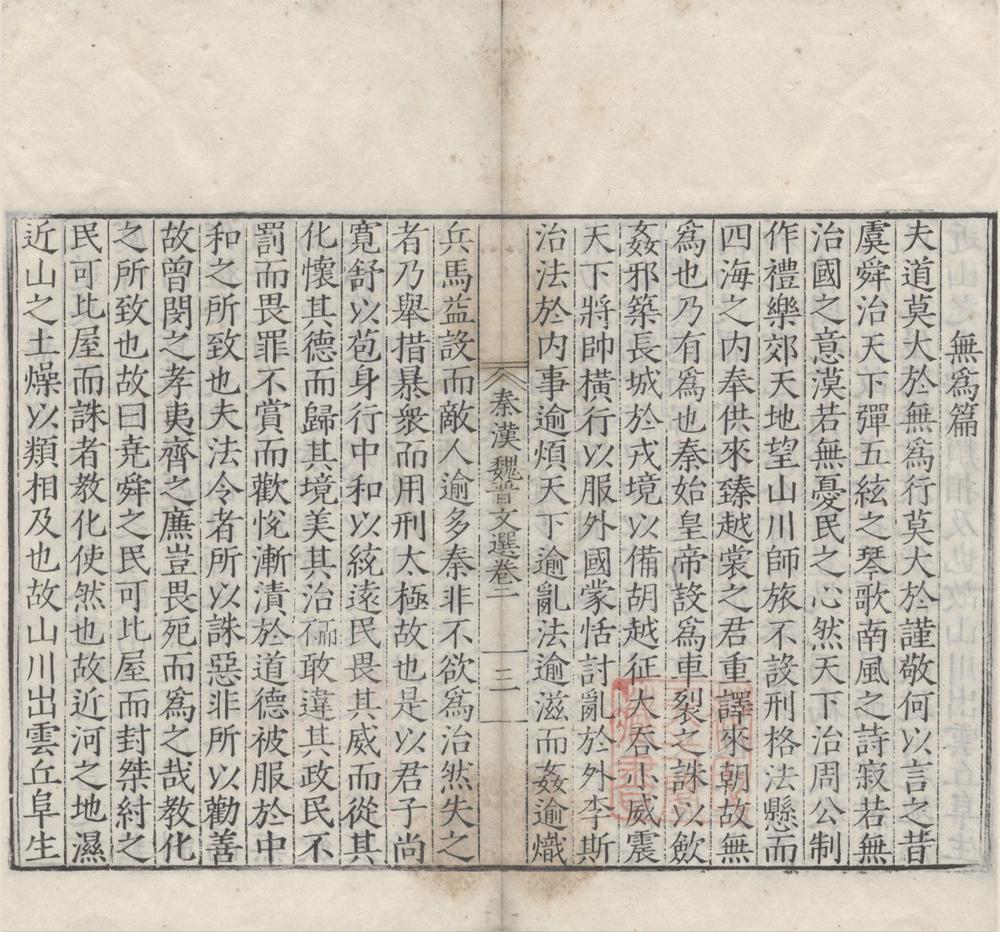 無爲篇
夫道莫大於無爲行莫大於謹敬何以言之昔
虞舜治天下彈五絃之琴歌南風之詩寂若無
治國之意漠若無憂民之心然天下治周公制
作禮樂郊天地望山川師旅不設刑格法懸而
四海之內奉供來臻越裳之君重譯來朝故無
爲也乃有爲也秦始皇帝設爲車裂之誅以歛
姦邪築長城於戎境以備胡越征大吞小威震
天下將帥橫行以服外國蒙恬討亂於外李斯
治法於內事逾煩天下逾亂法逾滋而姦逾熾
秦漢魏晉文選卷二
三
兵馬益設而敵人逾多秦非不欲爲治然失之
者乃舉措暴衆而用刑太極故也是以君子尚
寛舒以苞身行中和以統遠民畏其威而從其
化懷其德而歸其境美其治而不敢違其政民不
罰而畏罪不賞而歡悅漸漬於道德被服於中
和之所致也夫法令者所以誅惡非所以勸善
故曾閔之孝夷齊之廉豈畏死而爲之哉教化
之所致也故曰堯舜之民可比屋而封桀紂之
民可比屋而誅者教化使然也故近河之地濕
近山之土燥以類相及也故山川出雲丘阜生